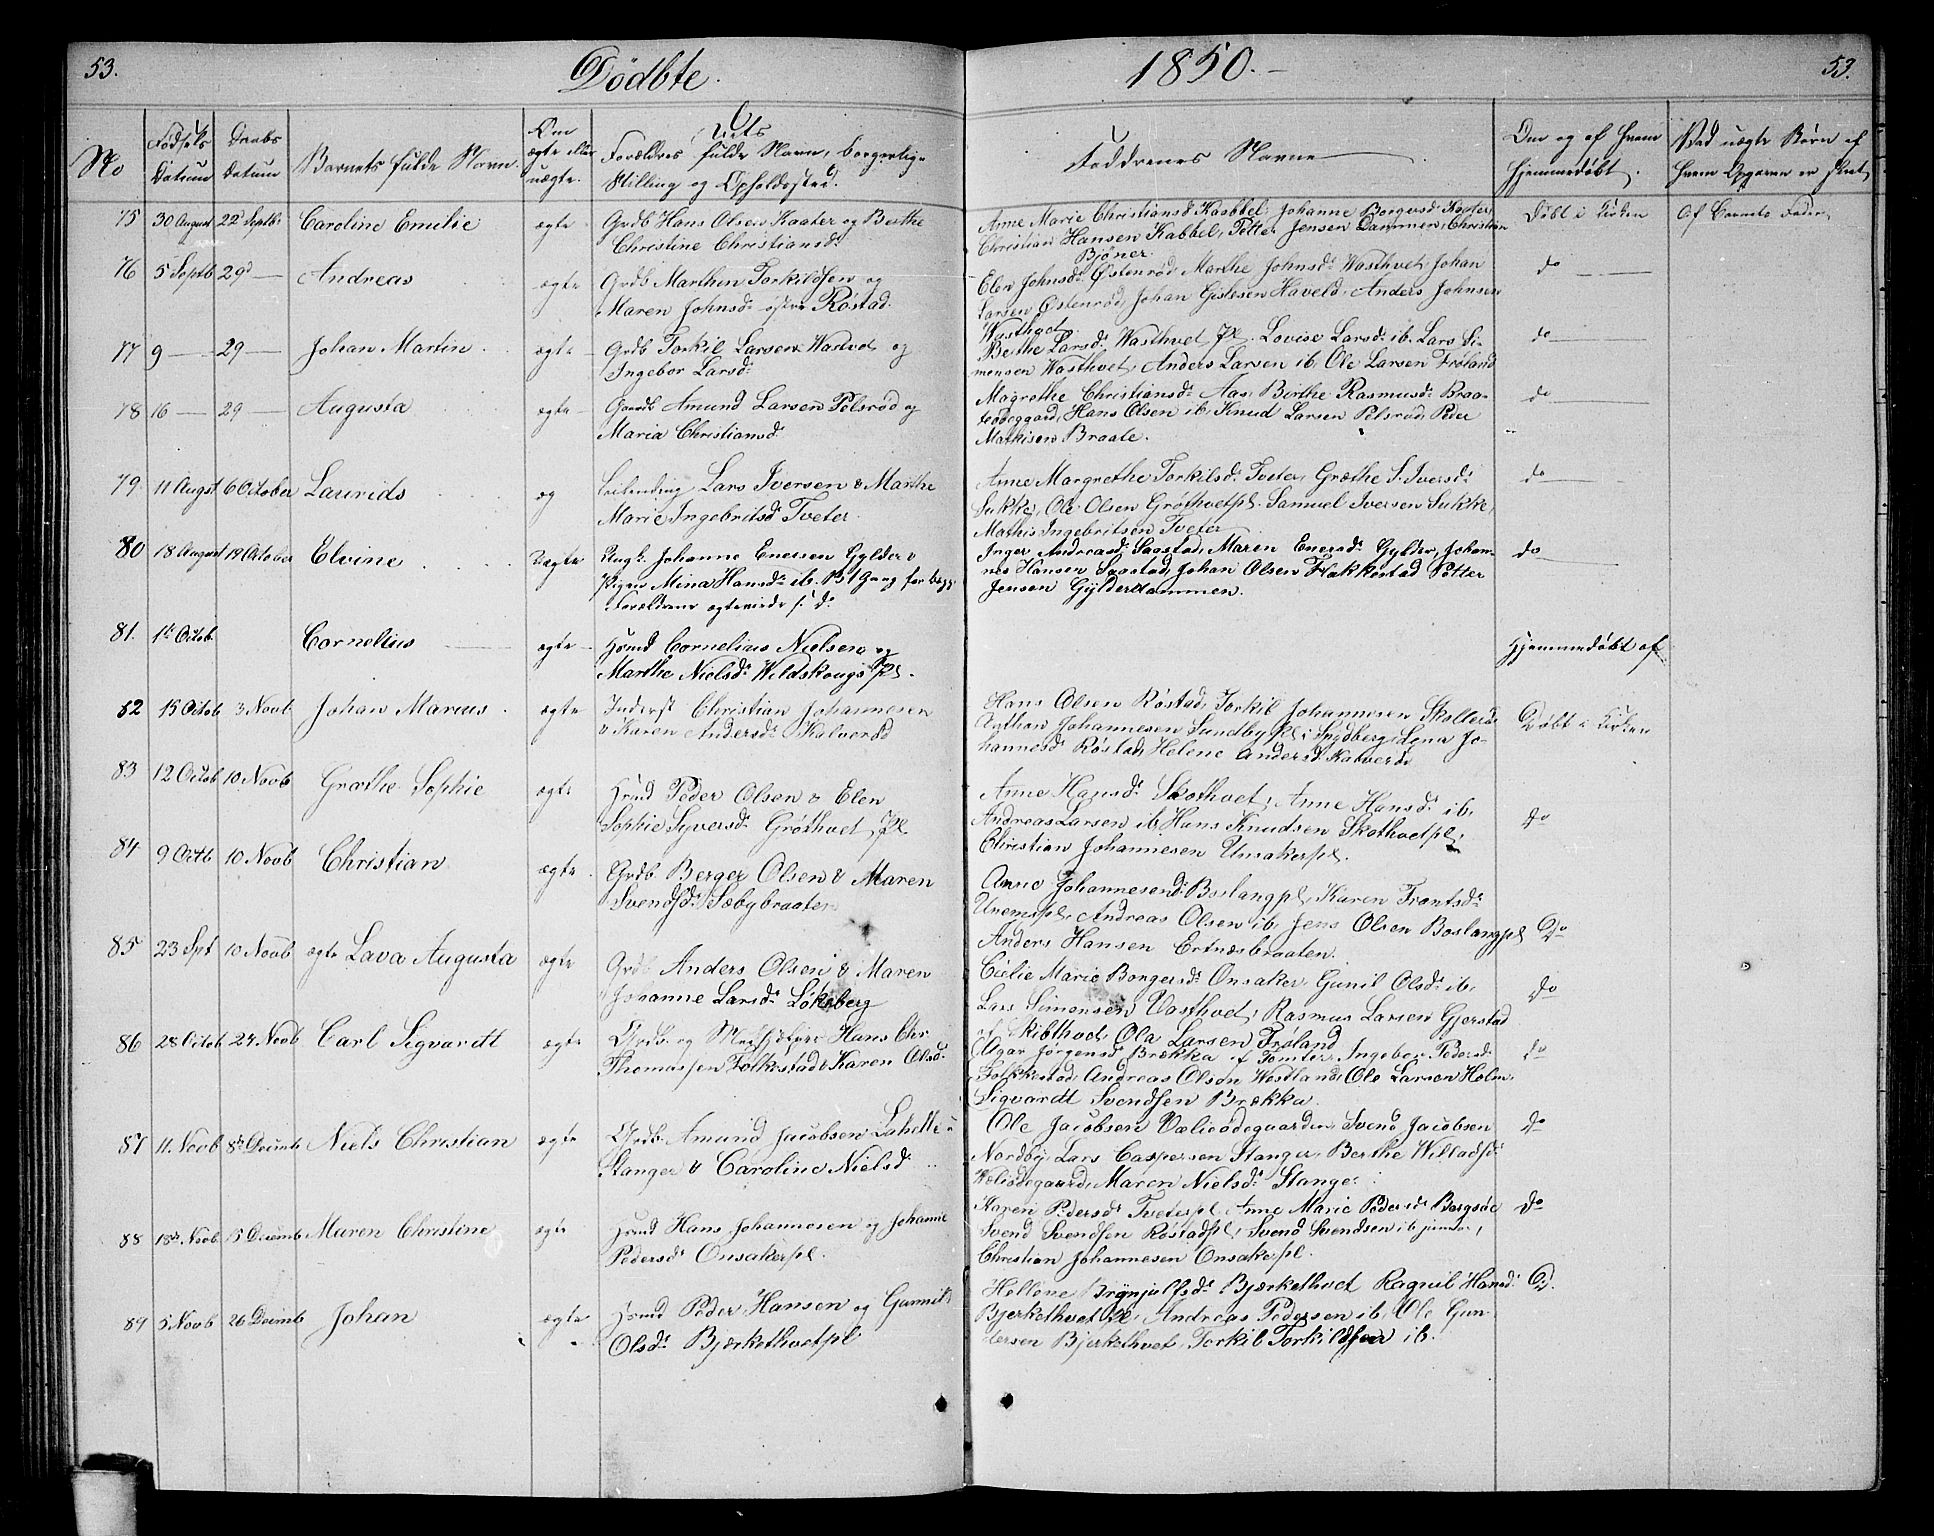 53.
Døbte.
1850.
53.
No
Fødsels Datum
Daabs Datum
Barnets fulde Navn.
Om ægte eller uægte.
Forældres fulde Navn, borgerlige
Stilling og Opholdssted.
Faddrenes Navne
Om og af hvem
hjemmedøbt.
Ved uægte Børn af
hvem Opgaven er skeet
75 30 August 22d Septb. Caroline Emilie ægte Grdb Hans Olsen Kaater og Berthe
Christine Christiansd.
Anne Marie Christiansd Kabbel, Johanne Borgersd. Kaater,
Christian Hansen Kabbel, Petter Jensen Dammen, Christian
Bjøner.
Døbt i Kirken
Af Barnets Fader
76 5 Septb 29d Andreas ægte Grdb Marthin Torkildsen og
Maren Johnsd. østre Røstad.
Elen Johnsd. Østenrød, Marthe Johnsd. Wasthvet, Johan
Larsen Østenrød, Johan Gislesen Haveld, Anders Johnsen
Wasthvet.
do
77 9 29 Johan Martin ægte Grdb Torkil Larsen Wastvet og
Ingebor Larsd.
Bethe Larsd. Wasthvet Pl. Lovise Larsd. ib. Lars Si-
monsen Wasthvet, Anders Larsen ib, Ole Larsen Frøland
do
78 16 29 Augusta ægte Gaardb Amund Larsen Pelsrød og
Maria Christiansd.
Magrethe Christiansd. Aas, Birthe Rasmusd. Braa-
teødegaard, Hans Olsen ib, Knud Larsen Pelsrød, Peder
Mathisen Braate.
do
79 11 Augst 6 October Laurids og Leilending Lars Iversen & Marthe
Marie Ingebritsd. Tveter.
Anne Margrethe Torkilsd. Tveter, Græthe S. Iversd.
Sukke, Ole Olsen Grøthvetpl. Samuel Iversen Sukke,
Mathis Ingebritsen Tveter
do
80 18 August 19 October Elvine Uægte Ungk. Johanne Enersen Gylder &
Pigen Mina Hansd. ib. B 1 Gang for begge
Forældrene ægteviede s. d.
Inger Andreasd. Saastad, Maren Enersd. Gylder, Johan-
nes Hansen Saastad, Johan Olsen Flakkestad Petter
Jensen Gylderdammen.
do
81. 1te Octob. Cornelius ægte Huusmd Cornelius Nielsen og
Marthe Nielsd. Wildskougs Pl.
Hjemmedøbt af
82 15 Octob 3 Novb. Johan Marius ægte Inderst Christian Johannesen
& Karen Andersd. Kalverød
Hans Olsen Røstad, Torkil Johannesen Skollerød
Agthon Johannesen Sundby Pl. i Sydberg, Lena Jo-
hannesd. Røstad, Helene Andersd. Kalverød
Døbt i Kirken
83 12 Octob 10 Novb Græthe Sophie ægte Husmd Peder Olsen & Elen
Sophie Syversd. Grøthvet Pl.
Anne Hansd. Skothvet, Anne Hansd. ib.
Andreas Larsen ib, Hans Knudsen Skothvetpl,
Christian Johannesen Unsakerpl.
do
84 9 Octb 10 Novb Christian ægte Grdb. Berger Olsen & Maren
Svendsd. Sæbybraaten
Anne Johannesend. Boslangpl, Karen Frantsd.
Unemspl, Andreas Olsen ib, Jens Olsen Boslangpl
Anders Hansen Ertnæsbraaten.
Do
85 23 Spt 10 Novb ægte Lava Augusta ægte Grdb. Anders Olsen & Maren
Johanne Larsd. Løkeberg
Cicilie Marie Borgersd. Onsaker, Gunil Olsd. ib,
Lars Simonsen Vasthvet, Rasmus Larsen Gjerstad
af Skibthvet, Ola Larsen Frøland
do
86 28 Octob 24 Novb Carl Sigvardt ægte Grdb. og Medhjelper Hans Chr.
Thomassen Folkestad & Karen Olsd.
Agar Jørgensd. Brækka af Tomter, Ingebor Pedersd.
Folkkestad, Andreas Olsen Westland, Ole Larsen Holm,
Sigvardt Svendsen Brækka.
do
87 11. Novb 8de Decmb Niels Christian ægte Grdb. Amund Jacobsen
Stanger & Caroline Nielsd
Ole Jacobsen Væliødegaarden, Svend Jacobsen
Nordby, Lars Caspersen Stanger, Berthe Willadsd.
Wæliødegaard, Maren Nielsd. Stange.
do
88 18de Novb 15 Decmb Maren Christine ægte Husmd Hans Johannesen og Johanne
Pedersd. Onsakerpl.
Karen Pedersd. Tveterpl, Anne Marie Pedersd. Bergsøe
Svend Svendsen Røstadpl, Svend Svendsen ib junior,
Christian Johannesen Onsakerpl.
do
89 5 Novb 26 Decmb Johan ægte Husmd Peder Hansen og Gunnil
Olsd. Bjærkethvetpl
Hellene Brynjulfsd. Bjærkethvet Ragnil Hansd.
Bjerkethvet Pl, Andreas Pedersen ib, Ole Gun-
dersen Bjerkethvet, Torkil Torkildsen ib.
D.